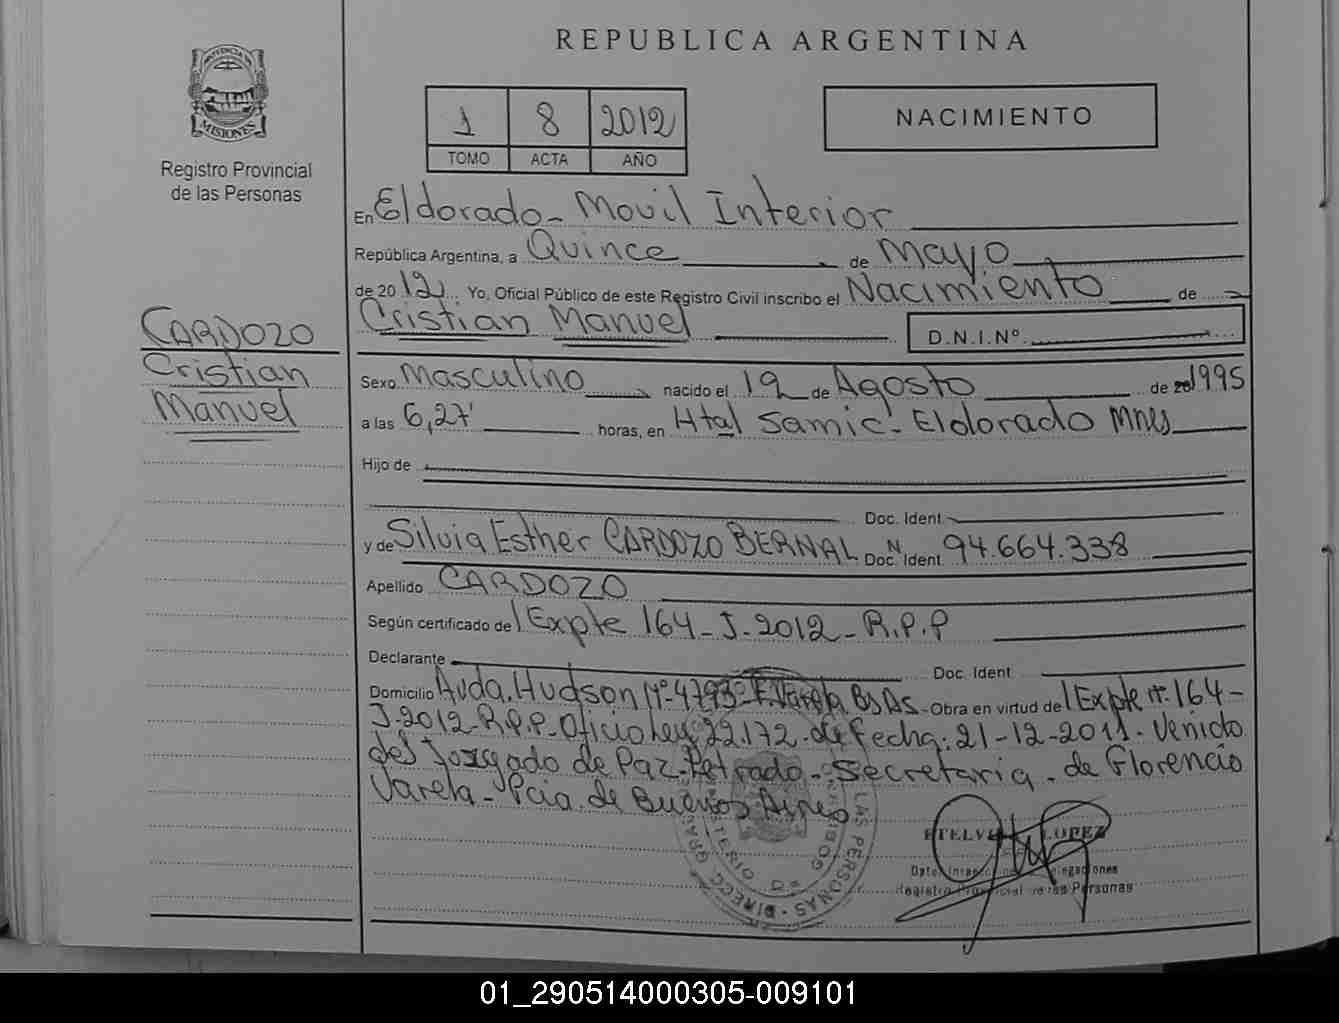 REPUBLICA ARGENTINA
PROVINCIA DE
MISIONES
Registro Provincial
de las Personas
1 8 2012
TOMO ACTA AÑO
NACIMIENTO
CARDOZO
Cristian
Manuel
En Eldorado - Movil Interior
República Argentina, a Quince de Mayo
de 2012 Yo, Oficial Público de este Registro Civil inscribo el Nacimiento de
Cristian Manuel D.N.I.Nº
Sexo Masculino nacido el 19 de Agosto de 1995
a las 6,27' horas, en Htal Samic - Eldorado Mnes
Hijo de
Doc. Ident
y de Silvia Esther CARDOZO BERNAL Doc. Ident N 94.664.338
Apellido CARDOZO
Según certificado de Expte 164 - J - 2012 - R.P.P
Declarante Doc. Ident
Domicilio Avda. Hudson Nº 4793 - F. Varela Bs As - Obra en virtud de Expte nº 164 -
J - 2012 - R.P.P - Oficio Ley 22.172 - de fecha: 21-12-2011 - Venido
del Juzgado de Paz - Letrado - Secretaria - de Florencio
Varela - Pcia. de Buenos Aires
LAS PERSONAS
LOPEZ
Registro Provincial de las Personas
01_290514000305-009101